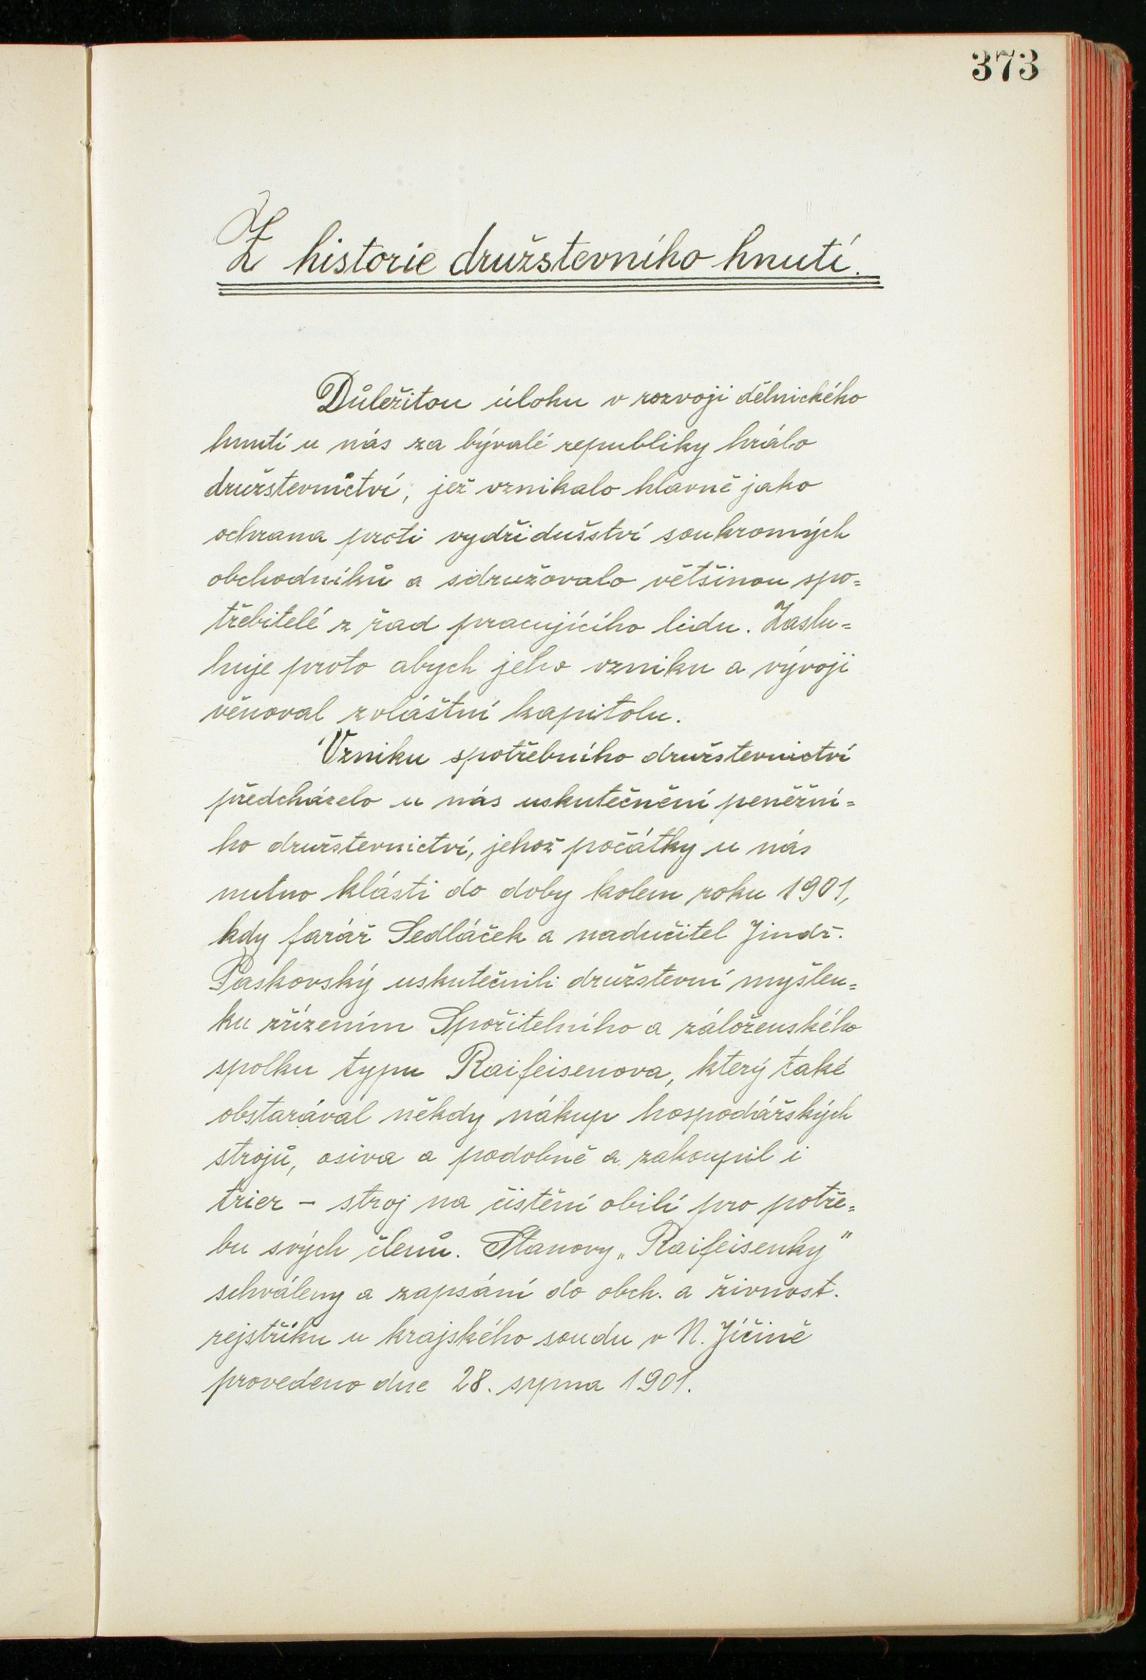 373
Z historie družstevního hnutí.
Důležitou úlohu v rozvoji dělnického
hnutí u nás za bývalé republiky hrálo
družstevnictví, jež vznikalo hlavně jako
ochrana proti vydřidušství soukromých
obchodníků a sdružovalo většinou spo=
třebitelé z řad pracujícího lidu. Zaslu=
huje proto abych jeho vzniku a vývoji
věnoval zvláštní kapitolu.
Vzniku spotřebního družstevnictví
předcházelo u nás uskutečnění peněžní=
ho družstevnictví, jehož počátky u nás
nutno klásti do doby kolem roku 1901,
kdy farář Sedláček a nadučitel Jindř.
Paskovský uskutečnili družstevní myšlen=
ku zřízením Spořitelního a záloženského
spolku typu Raifeisenova, který také
obstarával někdy nákup hospodářských
strojů, osiva a podobně a zakoupil i
trier – stroj na čistění obilí pro potře=
bu svých členů. Stanovy „Raifeisenky"
schváleny a zapsání do obch. a živnost.
rejstříku u krajského soudu v N. Jičině
provedeno dne 28. srpna 1901.